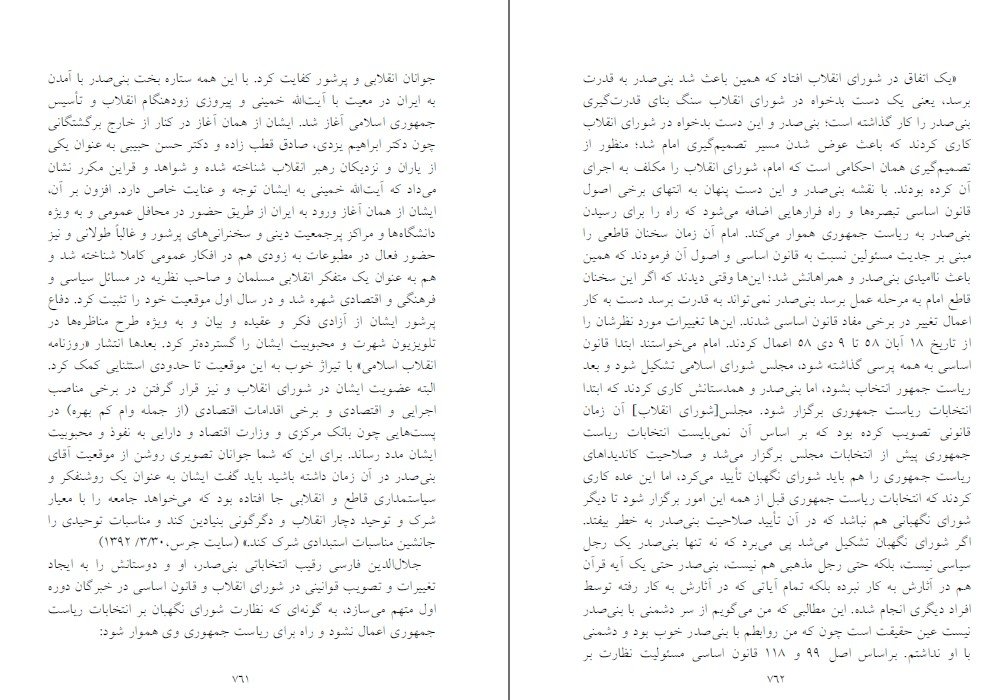 جوانان انقلابی و پرشور کفایت کرد. با این همه ستاره بخت بنی‌صدر با آمدن
به ایران در معیت با آیت‌الله خمینی و پیروزی زودهنگام انقلاب و تأسیس
جمهوری اسلامی آغاز شد. ایشان از همان آغاز در کنار از خارج برگشتگانی
چون دکتر ابراهیم یزدی، صادق قطب زاده و دکتر حسن حبیبی به عنوان یکی
از یاران و نزدیکان رهبر انقلاب شناخته شده و شواهد و قراین مکرر نشان
می‌داد که آیت‌الله خمینی به ایشان توجه و عنایت خاص دارد. افزون بر آن،
ایشان از همان آغاز ورود به ایران از طریق حضور در محافل عمومی و به ویژه
دانشگاه‌ها و مراکز پرجمعیت دینی و سخنرانی‌های پرشور و غالباً طولانی و نیز
حضور فعال در مطبوعات به زودی هم در افکار عمومی کاملا شناخته شد و
هم به عنوان یک متفکر انقلابی مسلمان و صاحب نظریه در مسائل سیاسی و
فرهنگی و اقتصادی شهره شد و در سال اول موقعیت خود را تثبیت کرد. دفاع
پرشور ایشان از آزادی فکر و عقیده و بیان و به ویژه طرح مناظره‌ها در
تلویزیون شهرت و محبوبیت ایشان را گسترده‌تر کرد. بعدها انتشار «روزنامه
انقلاب اسلامی» با تیراژ خوب به این موقعیت تا حدودی استثنایی کمک کرد.
البته عضویت ایشان در شورای انقلاب و نیز قرار گرفتن در برخی مناصب
اجرایی و اقتصادی و برخی اقدامات اقتصادی (از جمله وام کم بهره) در
پست‌هایی چون بانک مرکزی و وزارت اقتصاد و دارایی به نفوذ و محبوبیت
ایشان مدد رساند. برای این که شما جوانان تصویری روشن از موقعیت آقای
بنی‌صدر در آن زمان داشته باشید باید گفت ایشان به عنوان یک روشنفکر و
سیاستمداری قاطع و انقلابی جا افتاده بود که می‌خواهد جامعه را با معیار
شرک و توحید دچار انقلاب و دگرگونی بنیادین کند و مناسبات توحیدی را
جانشین مناسبات استبدادی شرک کند.» (سایت جرس،۳/۳۰/ ۱۳۹۲)
جلال‌الدین فارسی رقیب انتخاباتی بنی‌صدر، او و دوستانش را به ایجاد
تغییرات و تصویب قوانینی در شورای انقلاب و قانون اساسی در خبرگان دوره
اول متهم می‌سازد، به گونه‌ای که نظارت شورای نگهبان بر انتخابات ریاست
جمهوری اعمال نشود و راه برای ریاست جمهوری وی هموار شود:
۷۶۱
«یک اتفاق در شورای انقلاب افتاد که همین باعث شد بنی‌صدر به قدرت
برسد، یعنی یک دست بدخواه در شورای انقلاب سنگ بنای قدرت‌گیری
بنی‌صدر را کار گذاشته است؛ بنی‌صدر و این دست بدخواه در شورای انقلاب
کاری کردند که باعث عوض شدن مسیر تصمیم‌گیری امام شد؛ منظور از
تصمیم‌گیری همان احکامی است که امام، شورای انقلاب را مکلف به اجرای
آن کرده بودند. با نقشه بنی‌صدر و این دست پنهان به انتهای برخی اصول
قانون اساسی تبصره‌ها و راه فرارهایی اضافه می‌شود که راه را برای رسیدن
بنی‌صدر به ریاست جمهوری هموار می‌کند. امام آن زمان سخنان قاطعی را
مبنی بر جدیت مسئولین نسبت به قانون اساسی و اصول آن فرمودند که همین
باعث ناامیدی بنی‌صدر و همراهانش شد؛ این‌ها وقتی دیدند که اگر این سخنان
قاطع امام به مرحله عمل برسد بنی‌صدر نمی‌تواند به قدرت برسد دست به کار
اعمال تغییر در برخی مفاد قانون اساسی شدند. این‌ها تغییرات مورد نظرشان را
از تاریخ ۱۸ آبان ۵۸ تا ۹ دی ۵۸ اعمال کردند. امام می‌خواستند ابتدا قانون
اساسی به همه پرسی گذاشته شود، مجلس شورای اسلامی تشکیل شود و بعد
ریاست جمهور انتخاب بشود، اما بنی‌صدر و همدستانش کاری کردند که ابتدا
انتخابات ریاست جمهوری برگزار شود. مجلس[شورای انقلاب] آن زمان
قانونی تصویب کرده بود که بر اساس آن نمی‌بایست انتخابات ریاست
جمهوری پیش از انتخابات مجلس برگزار می‌شد و صلاحیت کاندیداهای
ریاست جمهوری را هم باید شورای نگهبان تأیید می‌کرد، اما این عده کاری
کردند که انتخابات ریاست جمهوری قبل از همه این امور برگزار شود تا دیگر
شورای نگهبانی هم نباشد که در آن تأیید صلاحیت بنی‌صدر به خطر بیفتد.
اگر شورای نگهبان تشکیل می‌شد پی می‌برد که نه تنها بنی‌صدر یک رجل
سیاسی نیست، بلکه حتی رجل مذهبی هم نیست، بنی‌صدر حتی یک آیه قرآن
هم در آثارش به کار نبرده بلکه تمام آیاتی که در آثارش به کار رفته توسط
افراد دیگری انجام شده. این مطالبی که من می‌گویم از سر دشمنی با بنی‌صدر
نیست عین حقیقت است چون که من روابطم با بنی‌صدر خوب بود و دشمنی
با او نداشتم. براساس اصل ۹۹ و ۱۱۸ قانون اساسی مسئولیت نظارت بر
۷۶۲